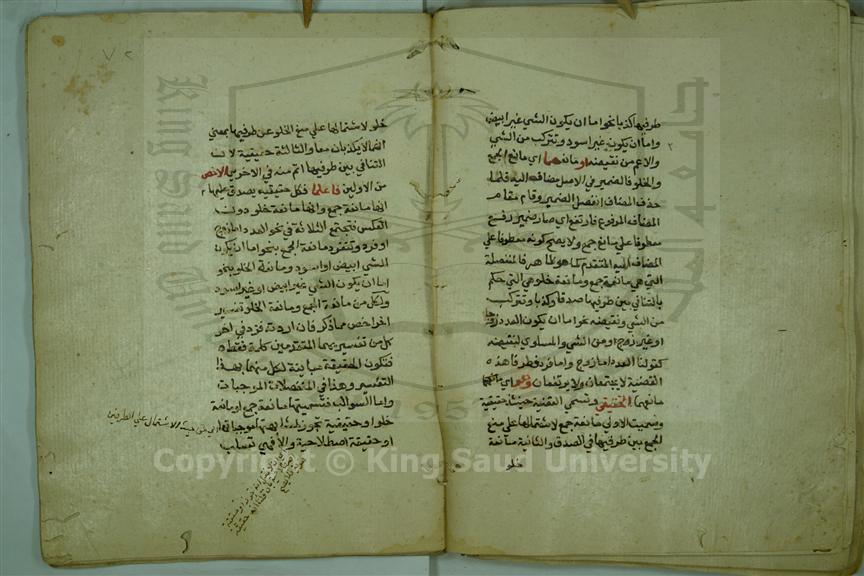 طرفيها كذبا نحو اما ان يكون الشي غير ابيض
واما ان يكون غير اسود وتتركب من الشي
والاعم من نقيضه او مانعهما اي مانع الجمع
والخلو فالضمير في الاصل مضاف اليه فلما
حذف المضاف انفصل الضمير وقام مقام
المضاف المرفوع فارتفع اي صار ضمير رفع
معطوفا على مانع جمع ولا يصح كونه معطوفا على
المضاف اليه المتقدم كما هو ظاهر فالمنفصلة
التي هي مانعة جمع ومانعة خلو هي التي حكم
بالتنافي بين طرفيها صدقا وكذبا وتتركب
من الشي ونقيضه نحو اما ان يكون العدد زوجا
او غير زوج او من الشي والمساوي لنقيضه
كقولنا العدد اما زوج واما فرد فطرفا هذه
القضية لا يجتمعان ولا يرتفعان وهو اي مانعهما
الحقيقي وتسمى القضية حينئذ حقيقية
وسميت الاولى مانعة جمع لاشتمالها على منع
الجمع بين طرفيها في الصدق والثانية مانعة
خلو
خلو لاشتمالها على منع الخلو عن طرفيها بمعنى
انهما لا يكذبان معا والثالثة حقيقية لان
التنافي بين طرفيها اتم منه في الاخرى الاخص
من الاولين فاعلما فكل حقيقية يصدق عليها
انها مانعة جمع وانها مانعة خلو دون
العكس فتجتمع الثلاثة في نحو العدد اما زوج
او فرد وتنفرد مانعة الجمع بنحو اما ان يكون
الشي ابيض او اسود ومانعة الخلو بنحو
اما ان يكون الشي غير ابيض او غير اسود
ولكل من مانعة الجمع ومانعة الخلو تفسير
اخر اخص مما ذكر فان اردته فزد في اخر
كل من تفسيريهما المتقدمين كلمة فقط
فتكون الحقيقة مباينة لكل منهما بهذا
التفسير وهذا في المنفصلات الموجبات
واما السوالب فتسميتها مانعة جمع او مانعة
خلو او حقيقية تجوز
او حقيقة اصطلاحية والا فهي تسلب
الاشتمال على الطرفين